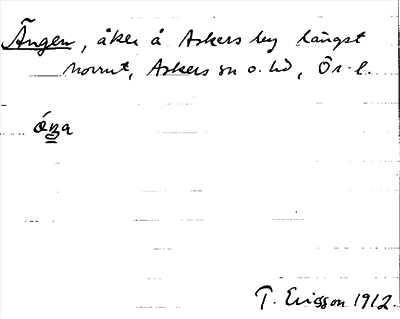 Ängen, åker å Askers by längst
norrut, Askers sn o. hd, Ör. l.
óŋa
T. Ericsson 1912.